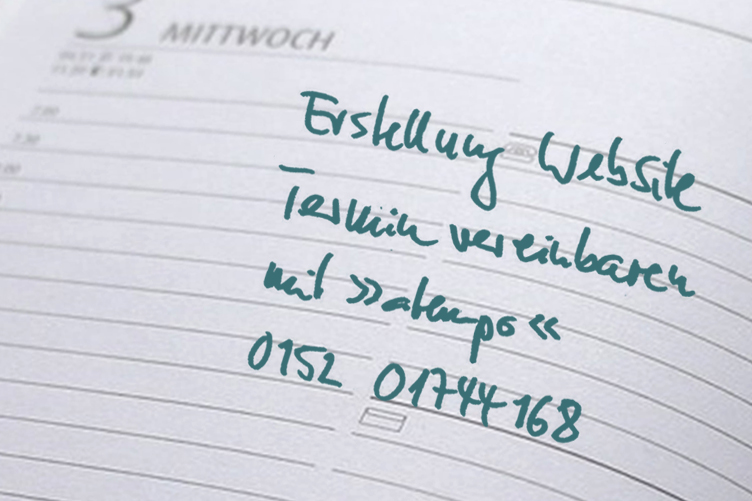 3 MITTWOCH
7.00
7.30
Erstellung Website
Termin vereinbaren
mit »atempo«
0152 01744168